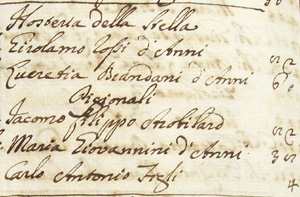 Hosteria della Stella
Girolamo Rossi d'Anni 32
Lucretia Brandani d'Anni 60
Pigionali
Iacomo Filippo
Maria Giovannini d'Anni 30
Carlo Antonio 4